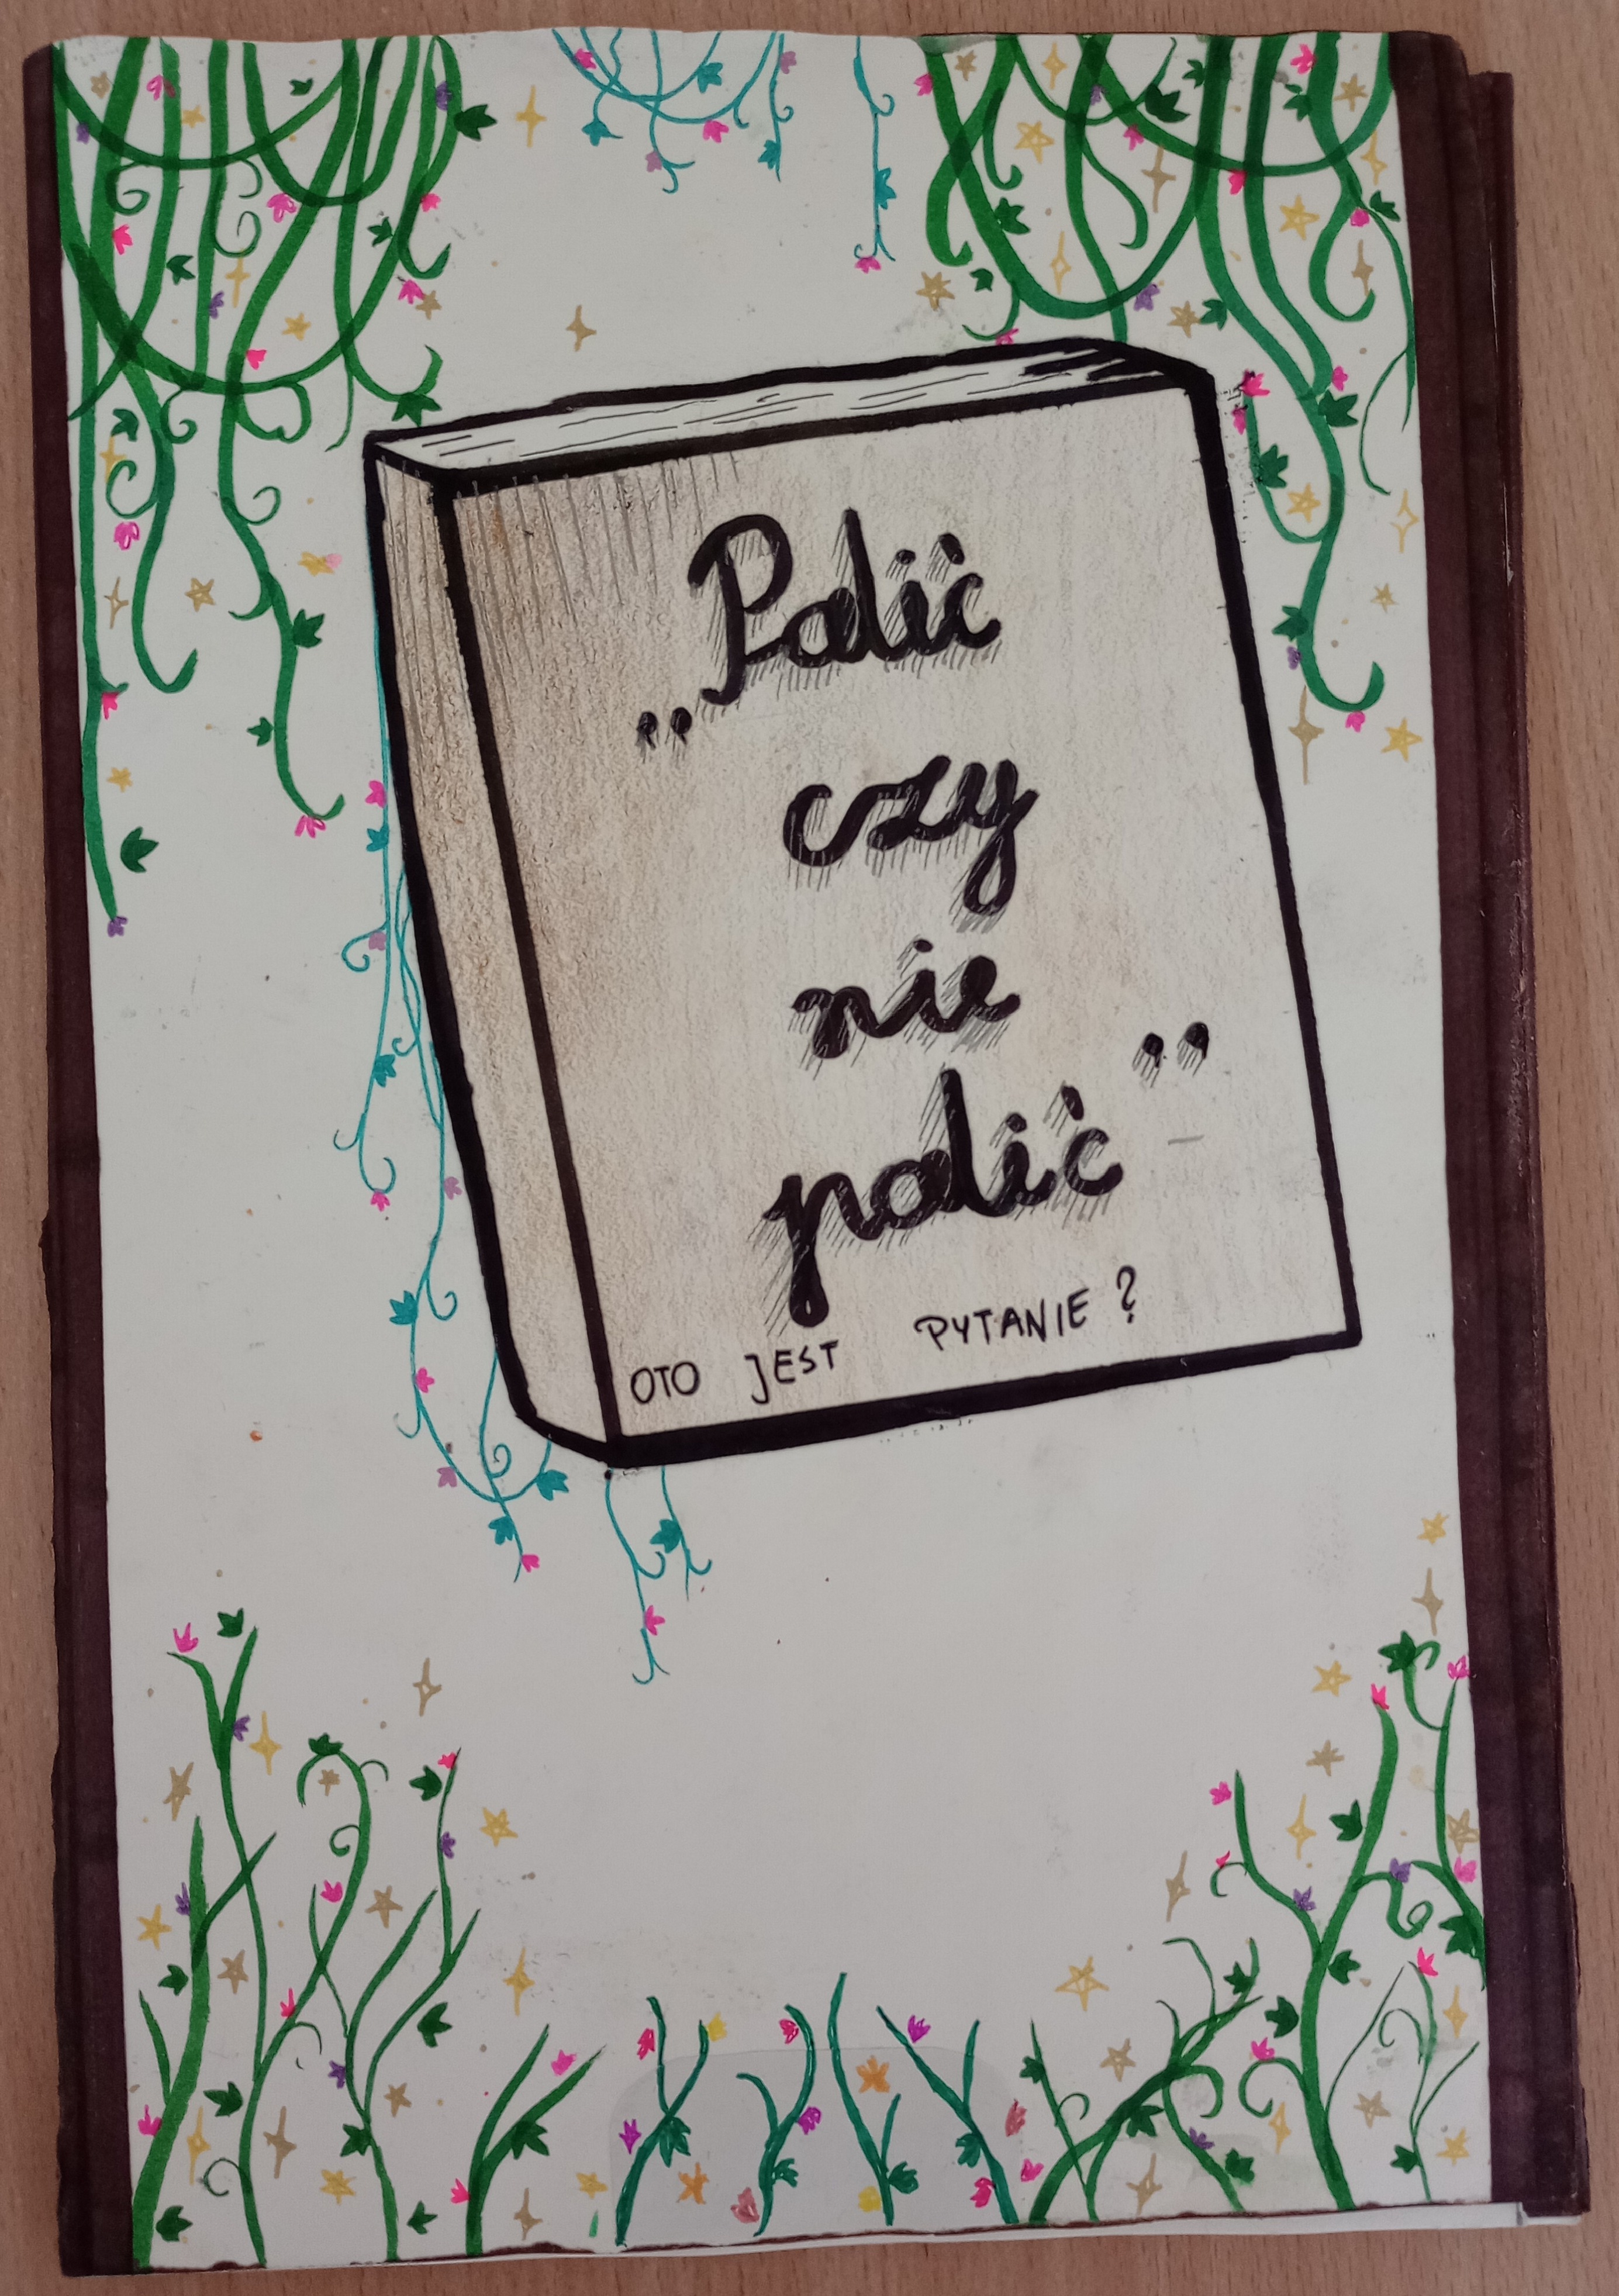 „Palić
czy
nie
palić”
OTO JEST PYTANIE?